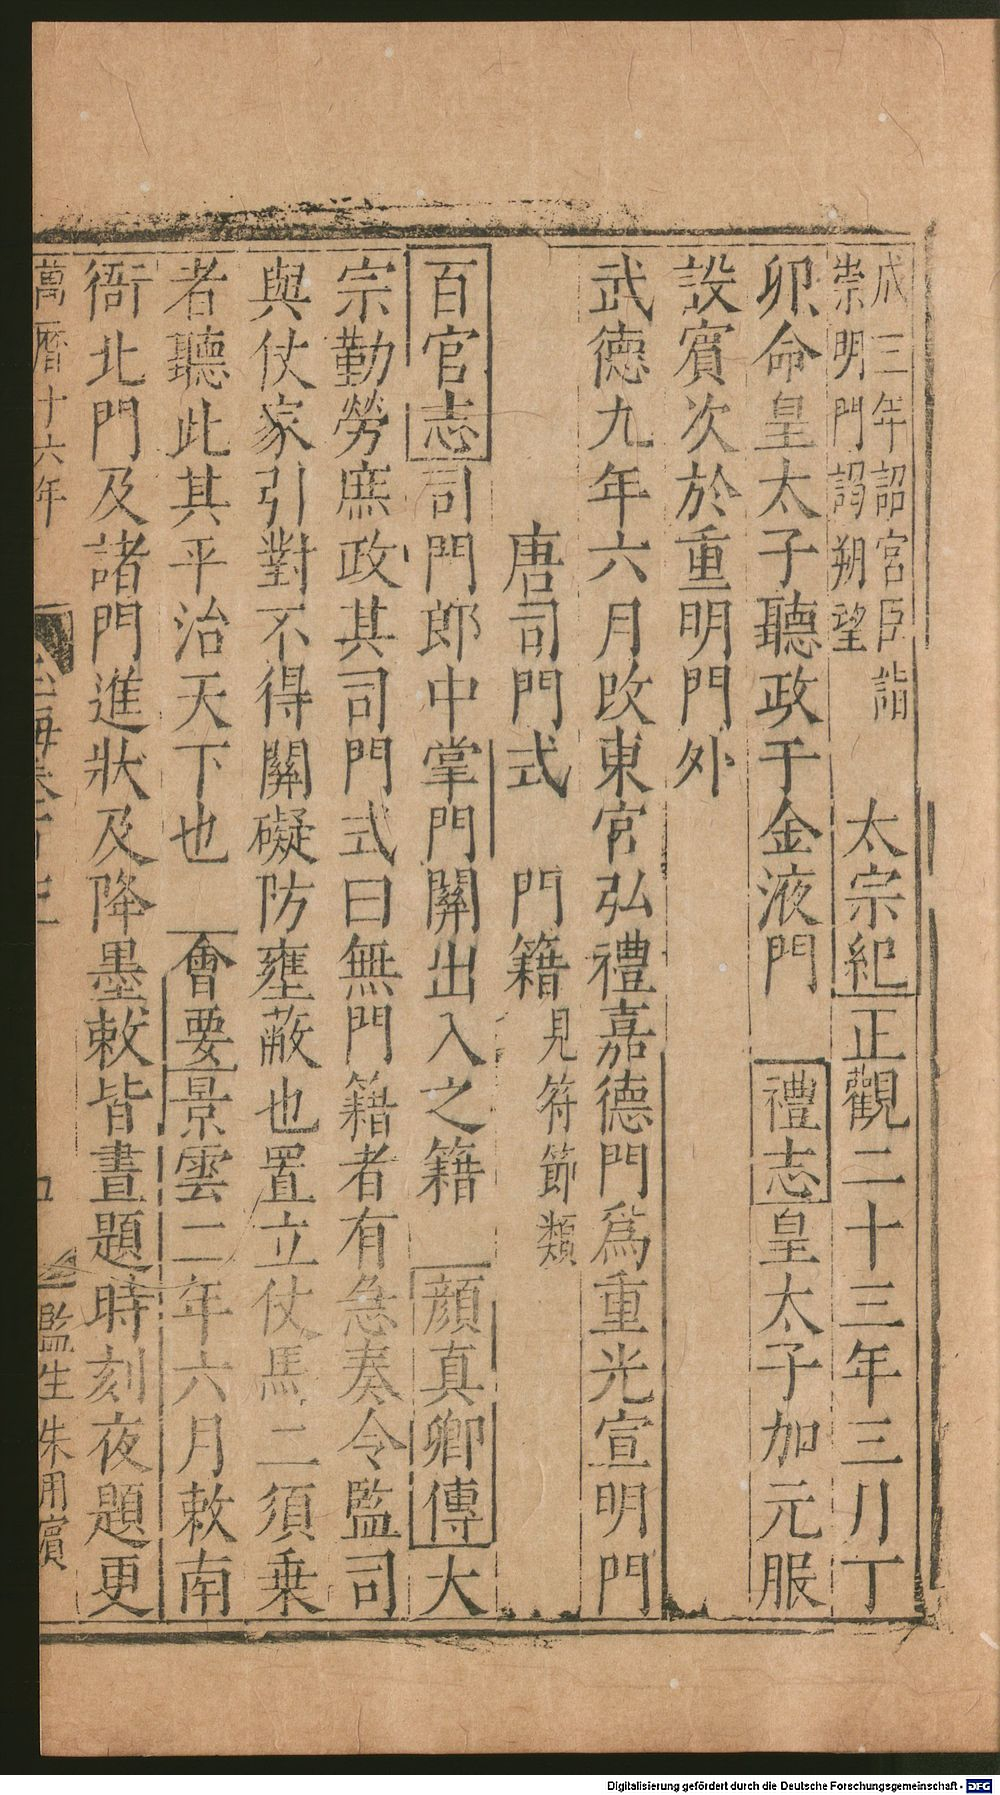 成三年詔宮臣詣
崇明門謁朔望
太宗紀正觀二十三年三月丁
卯命皇太子聽政于金液門 禮志皇太子加元服
設賓次於重明門外
武德九年六月改東宮弘禮嘉德門爲重光宣明門
唐司門式 門籍見符節類
百官志司門郎中掌門關出入之籍 顏真卿傳大
宗勤勞庶政其司門式曰無門籍者有急奏令監司
與仗家引對不得關礙防壅蔽也置立仗馬二須乗
者聽此其平治天下也 會要景雲二年六月敕南
衙北門及諸門進狀及降墨敕皆晝題時刻夜題更
萬曆十六年
監生朱用賓
Digitalisierung gefördert durch die Deutsche Forschungsgemeinschaft - DFG